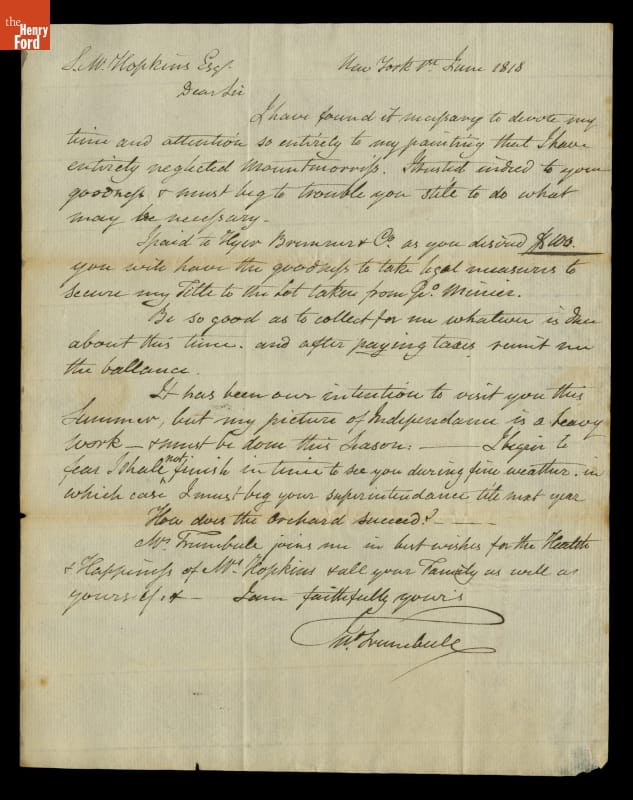 the
Henry
Ford
S. W. Hopkins Esqr.
New York 1st June 1818
Dear Sir
I have found it necessary to devote my
time and attention so entirely to my painting that I have
entirely neglected Mountmorriss. I trusted indeed to your
goodness & must beg to trouble you still to do what
may be necessary.
I paid to Hyer Bremner & Co. as you desired $100.
you will have the goodness to take legal measures to
secure my Title to the Lot taken from Geo. Minier.
Be so good as to collect for me whatever is due
about this time. and after paying taxes remit me
the ballance.
It has been our intention to visit you this
Summer, but my picture of Independance is a heavy
work — & must be done this Season: — I begin to
fear I shall not finish in time to see you during fine weather. in
which case I must beg your superintendance till next year
How does the Orchard succeed? — — —
Mrs. Trumbull joins me in best wishes for the Health
& Happiness of Mrs. Hopkins & all your Family as well as
yourself. & — I am faithfully yours
Trumbull